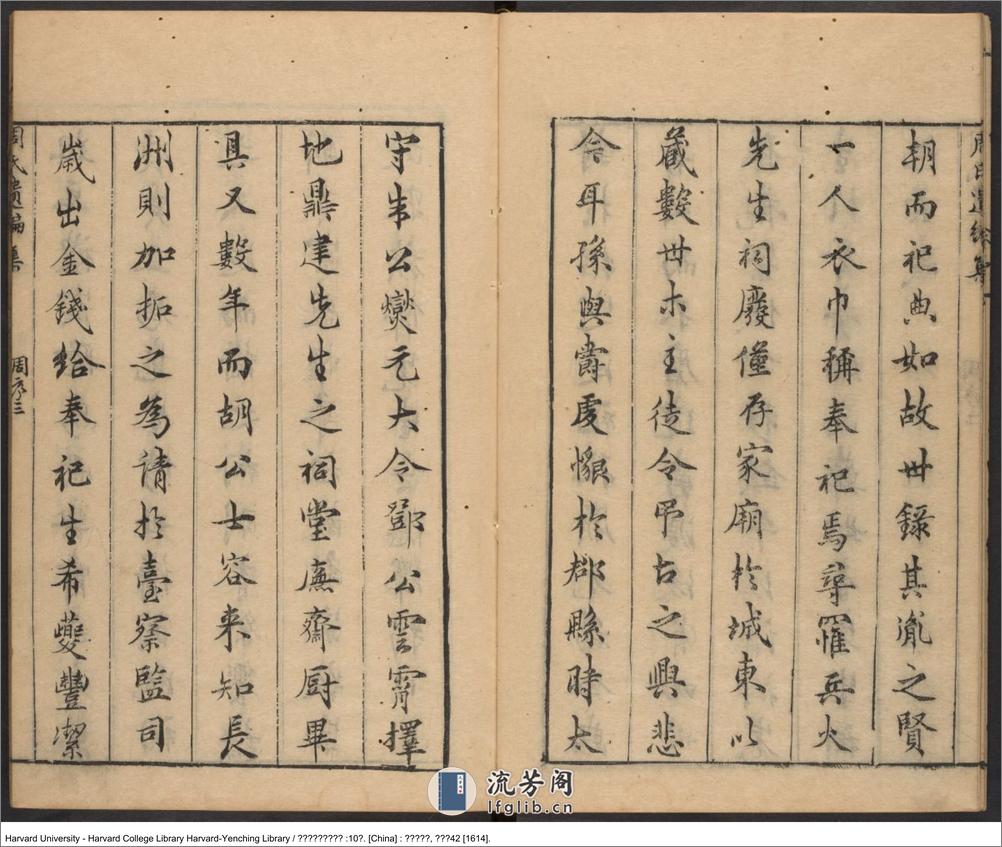 朝而祀典如故世錄其胤之賢
一人衣巾稱奉祀焉尋罹兵火
先生祠廢僅存家廟於城東以
藏數世木主徒令弔古之興悲
令耳孫與霨虔懇於郡縣時太
守朱公燮元大令鄧公雲霄擇
地鼎建先生之祠堂廡齋廚畢
具又數年而胡公士容来知長
洲則加拓之為請於臺察監司
歲出金錢給奉祀生希夔豐潔
周氏遺編集
周序三
流芳阁
lfglib.cn
Harvard University - Harvard College Library Harvard-Yenching Library / ????????? :10?. [China] : ?????, ???42 [1614].